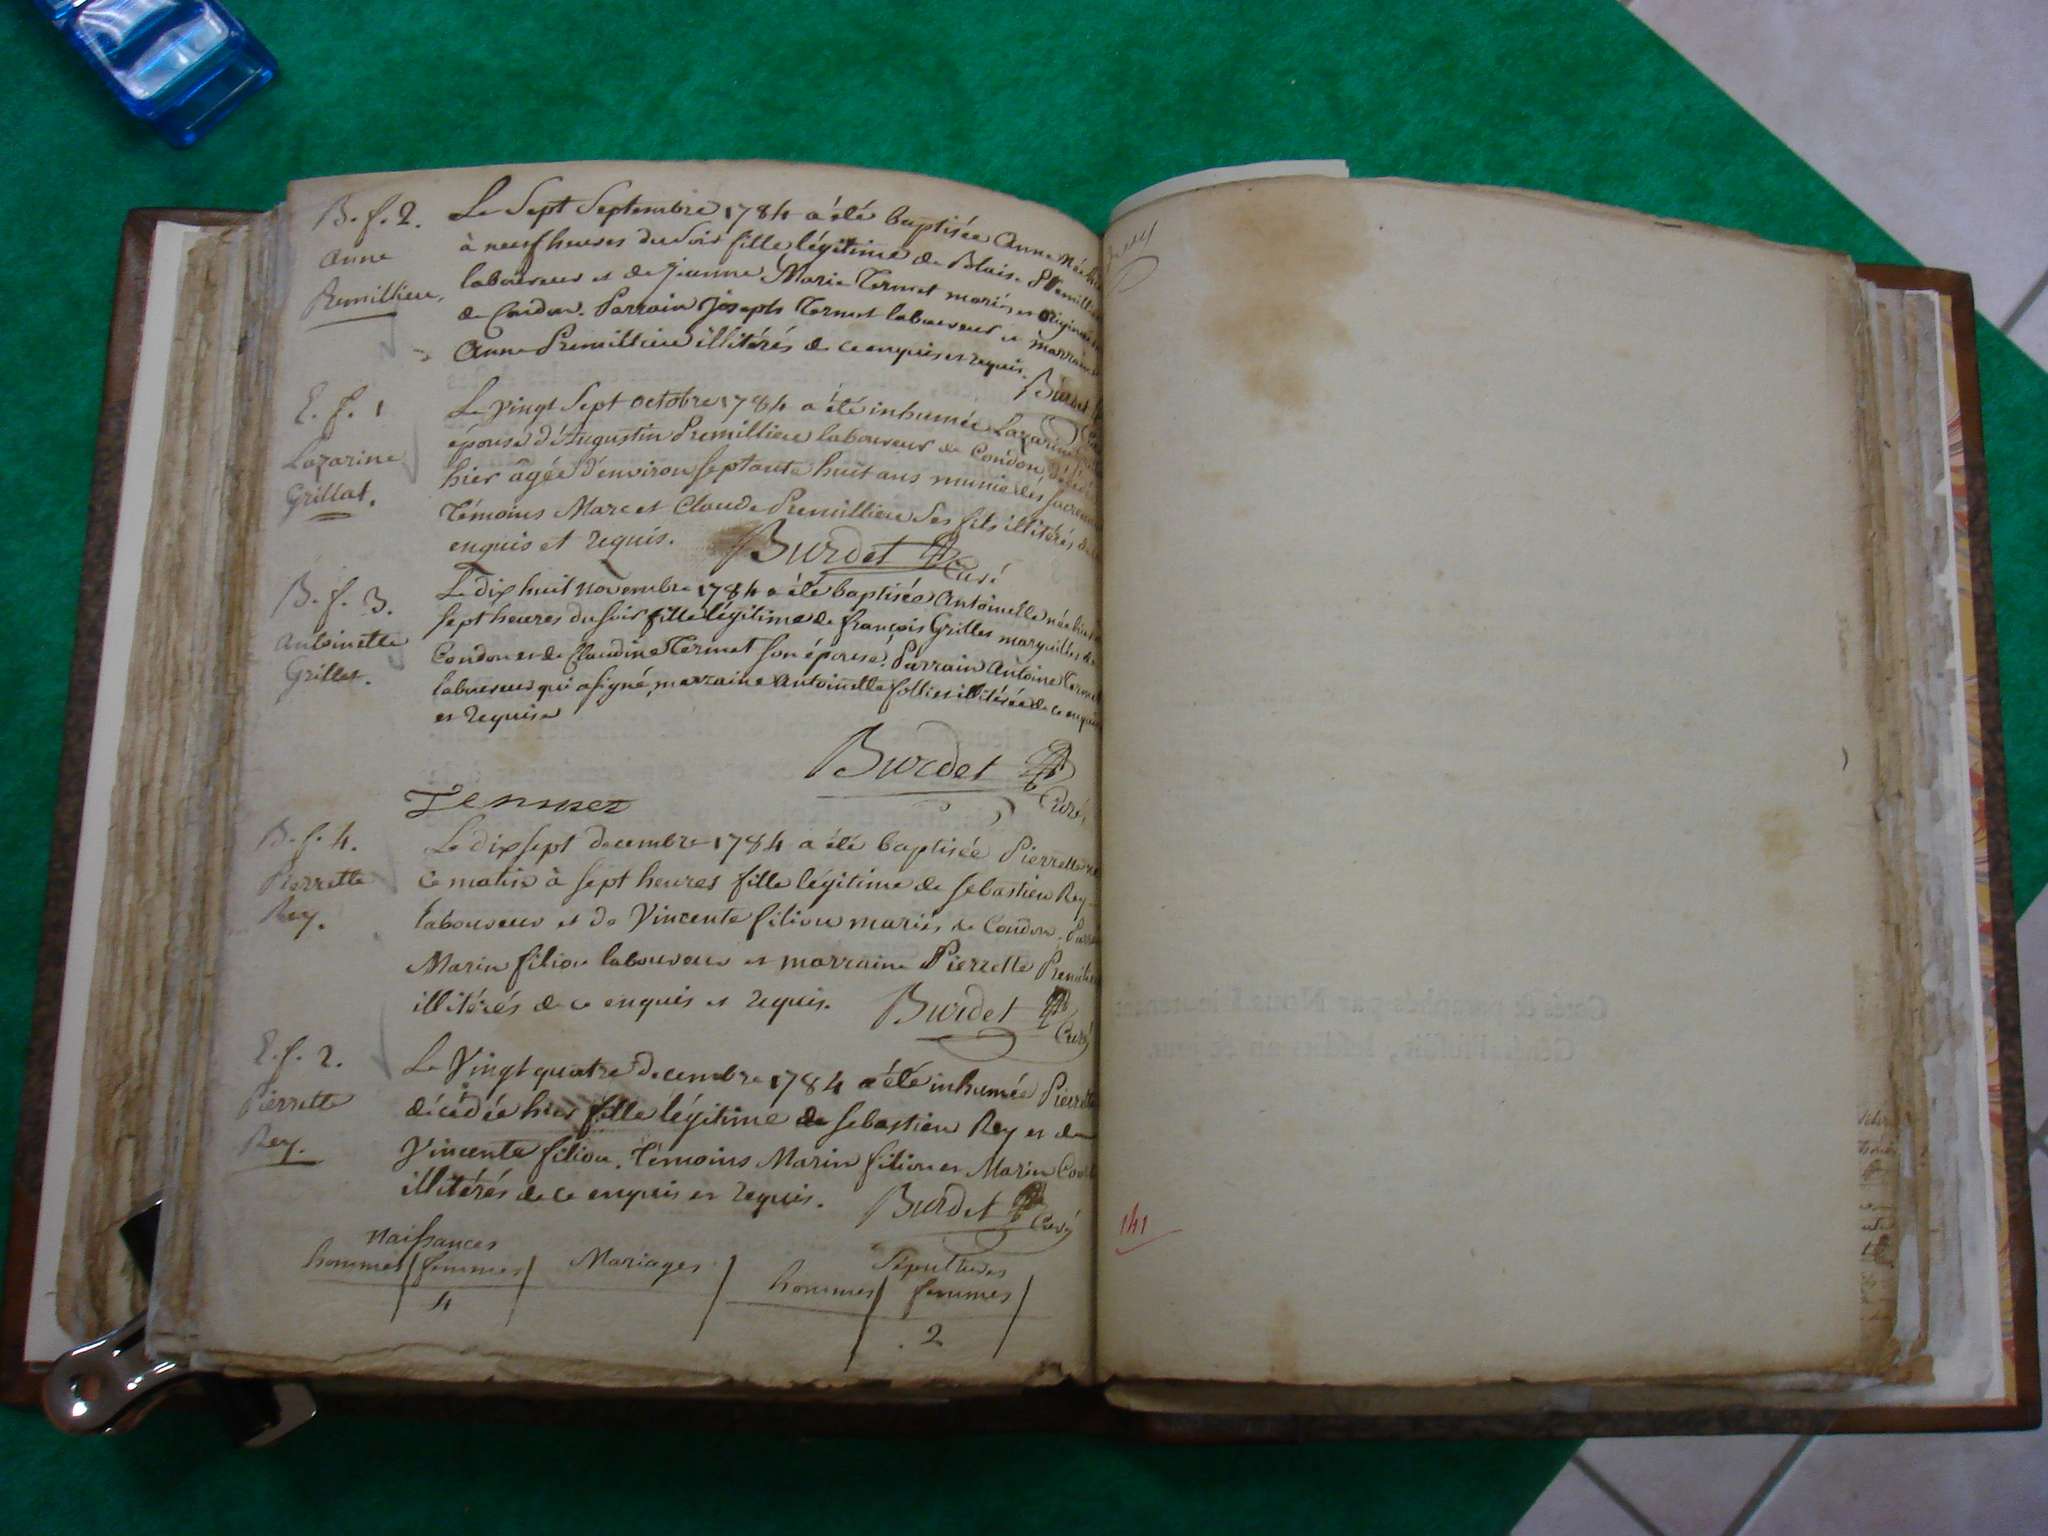 B. f. 2.
Anne
Premillieu.
Le Sept Septembre 1784 a été baptisée Anne née hier
à neuf heures du soir fille légitime de Blaise Premillieu
laboureur et de Jeanne Marie Termet mariés et originaires
de Condon. Parrain Joseph Termet laboureur et marraine
Anne Premillieu illitérés de ce enquis et requis.
Burdet
E. f. 1
Lazarine
Grillat.
Le vingt Sept octobre 1784 a été inhumée Lazarine
épouse d'Augustin Prémillieu laboureur de Condon décédée
hier âgée d'environ septante huit ans munie des sacrem
Témoins Marc et Claude Premillieu Ses fils illitérés de
enquis et requis. Burdet Curé
B. f. 3.
Antoinette
Grillet.
Le dix huit novembre 1784 a été baptisée Antoinette née hier
sept heures du soir fille légitime de françois Grillet marguiller de
Condon et de Claudine Termet son épouse. Parrain Antoine Termet
laboureur qui a signé, marraine Antoinette follier illitérée de ce enquise
et requise
Burdet Curé
Termet
B. f. 4.
Pierrette
Rey.
Le dix sept decembre 1784 a été baptisée Pierrette
ce matin à sept heures fille légitime de Sebastien Rey
laboureur et de Vincente filiou mariés de Condon. Parr
Marin filiou laboureur et marraine Pierrette Premilieu
illitérés de ce enquis et requis. Burdet Curé
E. f. 2.
Pierrette
Rey.
Le Vingt quatre decembre 1784 a été inhumée Pierrette
décédée hier fille légitime de Sebastien Rey et de
Vincente filiou. Témoins Marin filiou et Marin
illitérés de ce enquis et requis. Burdet Curé
naissances
hommes femmes Mariages Sépultures
hommes femmes
4
2
141